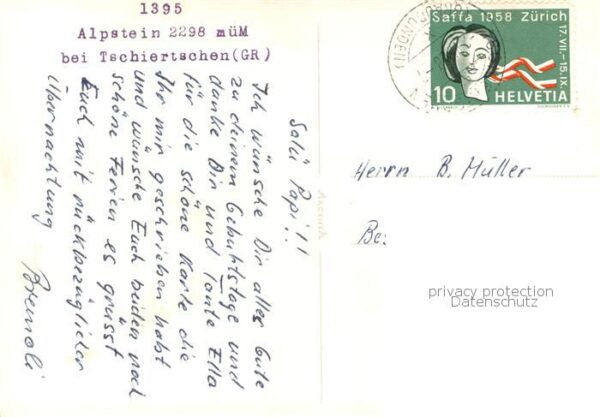 1395
Alpstein 2298 müM
bei Tschiertschen(GR)
Salü Papi!!
Ich wünsche Dir alles Gute
zu deinem Geburtstage und
danke Dir und Tante Ella
für die schöne Karte die
Ihr mir geschrieben habt
und wünsche Euch beiden noch
schöne Ferien es grüsst
Euch mit rückbezüglicher
Übernachtung
Saffa 1958 Zürich
17.VII.-15.IX.
10 HELVETIA
Herrn B. Müller
Be:
privacy protection
Datenschutz